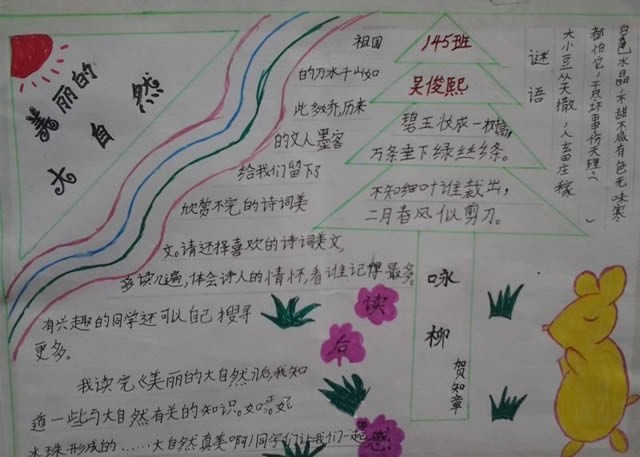 美丽的
大自然
祖国
的万水千山如
此多娇,历来
的文人墨客
给我们留下了
欣赏不完的诗词美
文。请选择喜欢的诗词美文
多读几遍,体会诗人的情怀,看谁记得最多。
有兴趣的同学还可以自己搜寻
更多。
145班
吴俊熙
碧玉妆成一树高,
万条垂下绿丝绦。
不知细叶谁裁出,
二月春风似剪刀。
咏柳
贺知章
谜语
白色水晶,不甜不咸有色无味家家
都怕它,干尽坏事伤天理。
大小豆从天撒,人畜庄稼
读后感
我读完《美丽的大自然》后,我知
道一些与大自然有关的知识。如:
水珠形成的……大自然真美啊!同学们让我们一起